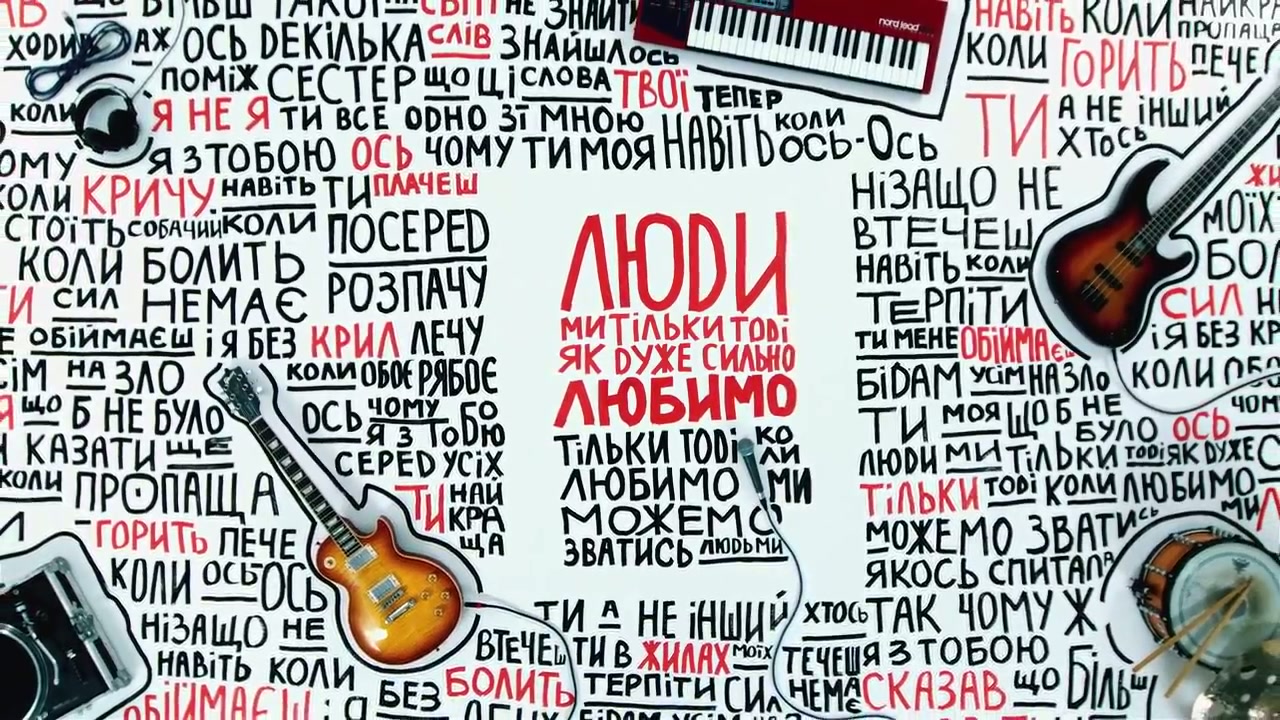 ЩО БІЛЬШ ТАКОГО СВІТІ НЕ ЗНАЙТИ
ХОДИ АХ ОСЬ ДЕКІЛЬКА СЛІВ ЗНАЙШЛОСЬ
ПОМІЖ СЕСТЕР ЩО ЦІ СЛОВА ТВОЇ ТЕПЕР
КОЛИ Я НЕ Я ТИ ВСЕ ОДНО ЗІ МНОЮ НАВІТЬ КОЛИ ОСЬ-ОСЬ
ОМУ Я З ТОБОЮ ОСЬ ЧОМУ ТИ МОЯ
КОЛИ КРИЧУ НАВІТЬ ТИ ПЛАЧЕШ
СТОЇТЬ СОБАЧИЙ КОЛИ ПОСЕРЕД
КОЛИ БОЛИТЬ РОЗПАЧУ
ТИ СИЛ НЕМАЄ
Е ОБІЙМАЄШ І Я БЕЗ КРИЛ ЛЕЧУ
СІМ НА ЗЛО КОЛИ ОБОЄ РЯБОЄ
Я ЩО Б НЕ БУЛО ОСЬ ЧОМУ БО
Я З ТОБОЮ
И КАЗАТИ ЩЕ СЕРЕД УСІХ
КОЛИ ПРОПАЩА ТИ НАЙ
КРА
ЩА
ГОРИТЬ ПЕЧЕ
КОЛИ ОСЬ-ОСЬ
НІЗАЩО НЕ
НАВІТЬ КОЛИ
ОБІЙМАЄШ І Я БЕЗ БОЛИТЬ
nord lead
НАВІТЬ КОЛИ НАЙКРА
ПРОПАЩА
КОЛИ ГОРИТЬ ПЕЧЕ
ТИ А НЕ ІНШИЙ
ХТОСЬ
ЛЮДИ
МИ ТІЛЬКИ ТОДІ
ЯК ДУЖЕ СИЛЬНО
ЛЮБИМО
ТІЛЬКИ ТОДІ КО
ЛИ
ЛЮБИМО МИ
МОЖЕМО
ЗВАТИСЬ ЛЮДЬМИ
НІЗАЩО НЕ
ВТЕЧЕШ МОЇХ
НАВІТЬ КОЛИ БОЛ
ТЕРПІТИ СИЛ Н
ТИ МЕНЕ ОБІЙМАЄШ І Я БЕЗ КР
БІДАМ УСІМ НА ЗЛО КОЛИ ОБО
ТИ МОЯ ЩО Б НЕ БУЛО ОСЬ ЧОМ
ЛЮДИ МИ ТІЛЬКИ ТОДІ ЯК ДУЖЕ С
ТІЛЬКИ ТОДІ КОЛИ ЛЮБИМО МИ
МОЖЕМО ЗВАТИСЬ
ЯКОСЬ СПИТАЛА
ТИ А НЕ ІНШИЙ ХТОСЬ ТАК ЧОМУ Ж
ВТЕЧЕШ ТИ В ЖИЛАХ МОЇХ ТЕЧЕШ Я З ТОБОЮ
ТЕРПІТИ СИЛ НЕМАЄ СКАЗАВ ЩО БІЛЬШ